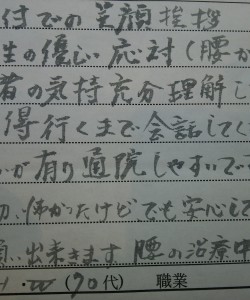 付での笑顔挨拶
生の優しい応対(腰か
者の気持充分理解し
得行くまで会話して
が有り通院しやすいで
切、怖かったけどでも安心して
願い出来きます 腰の治療中
(70代) 職業